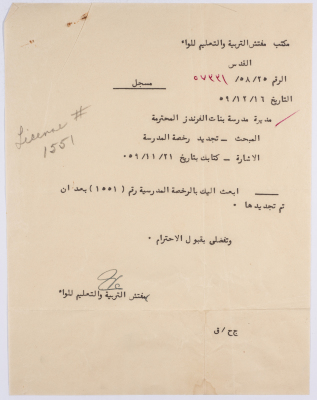 مكتب مفتش التربية والتعليم للواء
القدس
الرقم ٥٨/٢٥/
التاريخ ٥٩/١٢/١٦
مسجل
مديرة مدرسة بنات الفرندز المحترمة
المبحث – تجديد رخصة المدرسة
الاشارة – كتابك بتاريخ ٥٩/١١/٢١ ·
License #
1551
ابعث اليك بالرخصة المدرسية رقم (١٥٥١) بعد ان
تم تجديدها ·
وتفضلي بقبول الاحترام ·
مفتش التربية والتعليم للواء
ج ح / ق